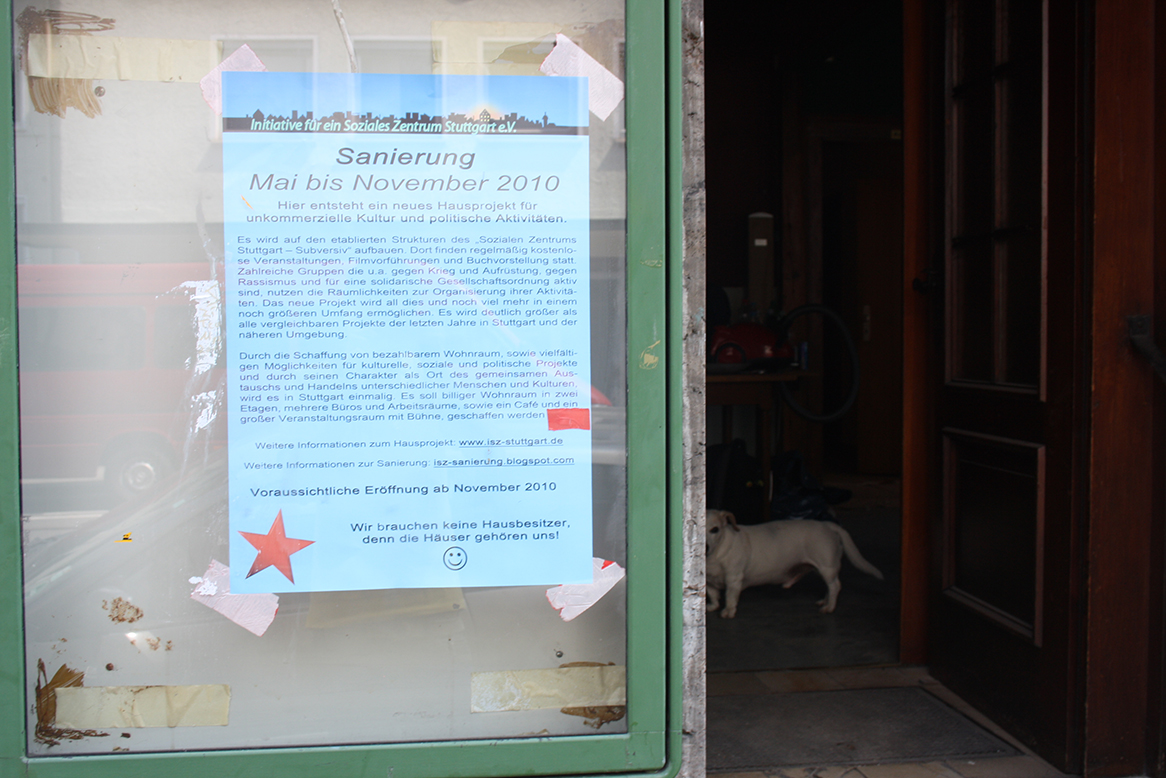 Initiative für ein Soziales Zentrum Stuttgart e.V.
Sanierung
Mai bis November 2010
Hier entsteht ein neues Hausprojekt für
unkommerzielle Kultur und politische Aktivitäten.
Es wird auf den etablierten Strukturen des „Sozialen Zentrums
Stuttgart – Subversiv“ aufbauen. Dort finden regelmäßig kostenlo-
se Veranstaltungen, Filmvorführungen und Buchvorstellung statt.
Zahlreiche Gruppen die u.a. gegen Krieg und Aufrüstung, gegen
Rassismus und für eine solidarische Gesellschaftsordnung aktiv
sind, nutzen die Räumlichkeiten zur Organisierung ihrer Aktivitä-
ten. Das neue Projekt wird all dies und noch viel mehr in einem
noch größeren Umfang ermöglichen. Es wird deutlich größer als
alle vergleichbaren Projekte der letzten Jahre in Stuttgart und der
näheren Umgebung.
Durch die Schaffung von bezahlbarem Wohnraum, sowie vielfälti-
gen Möglichkeiten für kulturelle, soziale und politische Projekte
und durch seinen Charakter als Ort des gemeinsamen Aus-
tauschs und Handelns unterschiedlicher Menschen und Kulturen,
wird es in Stuttgart einmalig. Es soll billiger Wohnraum in zwei
Etagen, mehrere Büros und Arbeitsräume, sowie ein Café und ein
großer Veranstaltungsraum mit Bühne, geschaffen werden
Weitere Informationen zum Hausprojekt: www.isz-stuttgart.de
Weitere Informationen zur Sanierung: isz-sanierung.blogspot.com
Voraussichtliche Eröffnung ab November 2010
Wir brauchen keine Hausbesitzer,
denn die Häuser gehören uns!